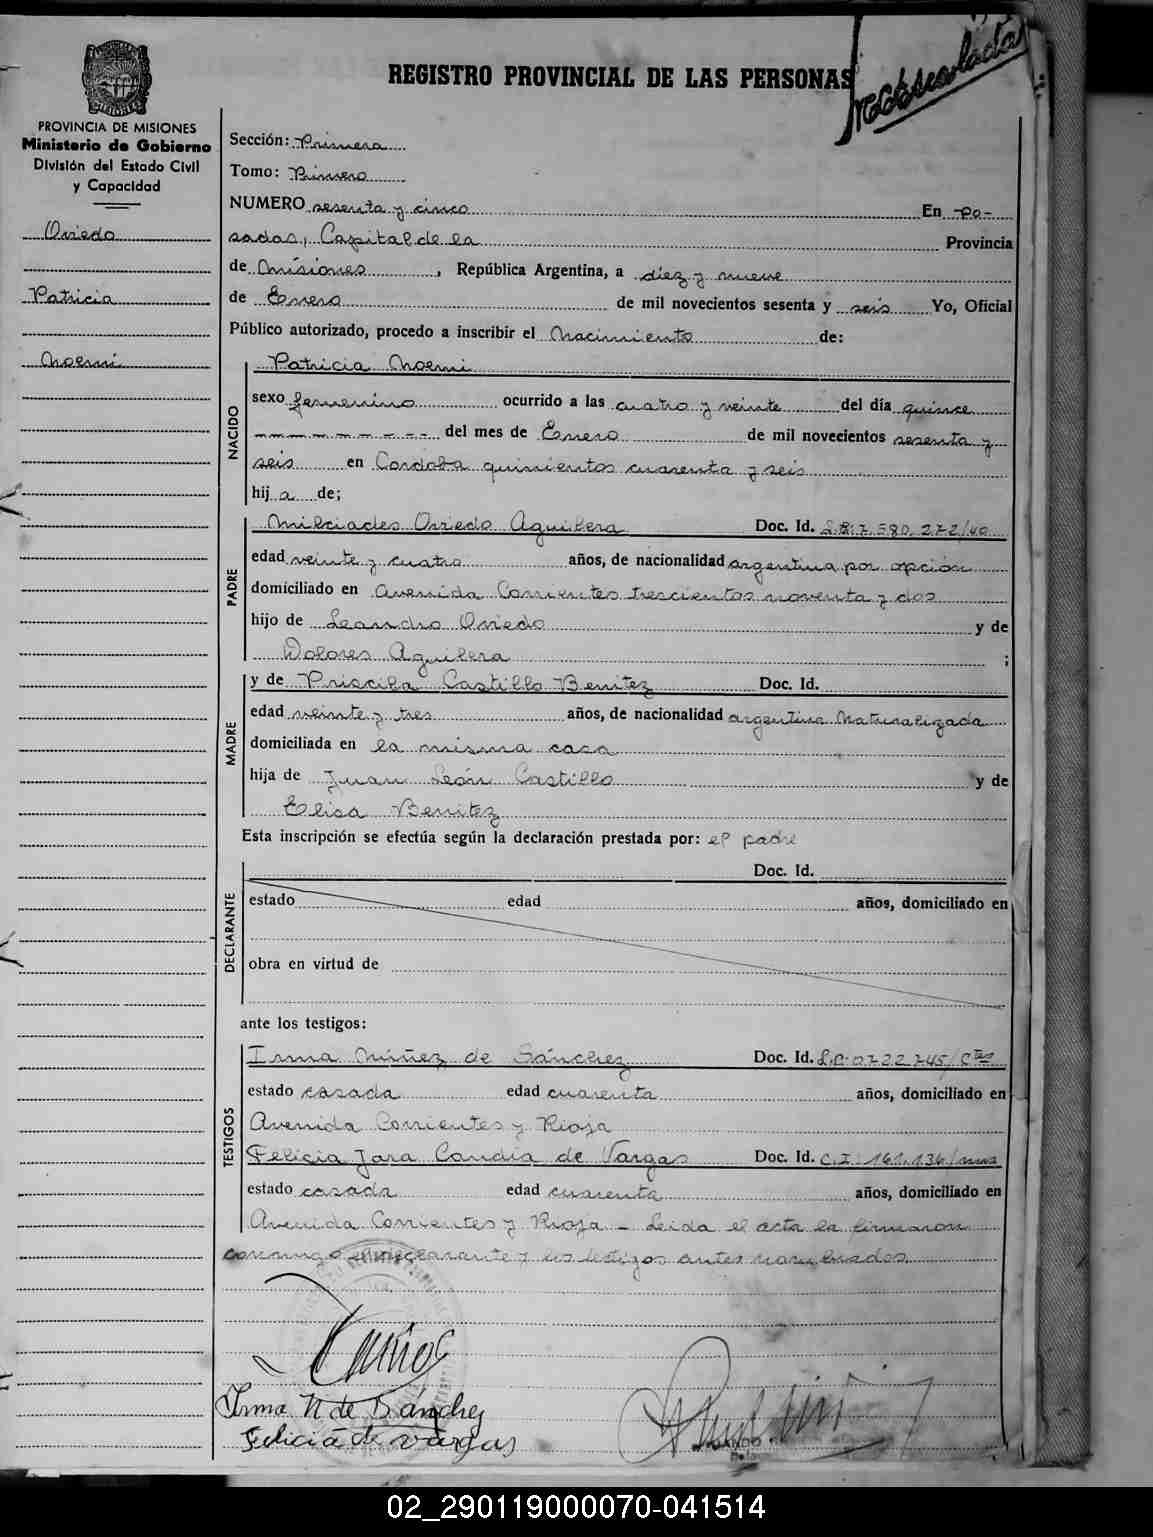 REGISTRO PROVINCIAL DE LAS PERSONAS
PROVINCIA DE MISIONES
Ministerio de Gobierno
División del Estado Civil
y Capacidad
Oviedo
Patricia
Noemi
Sección: Primera
Tomo: Primero
NUMERO sesenta y cinco En Po-
sadas, Capital de la Provincia
de Misiones, República Argentina, a diez y nueve
de Enero de mil novecientos sesenta y seis Yo, Oficial
Público autorizado, procedo a inscribir el Nacimiento de:
NACIDO
Patricia Noemi
sexo femenino ocurrido a las cuatro y veinte del día quince
--------- del mes de Enero de mil novecientos sesenta y
seis en Cordoba quinientos cuarenta y seis
hij a de;
PADRE
Milciades Oviedo Aguilera Doc. Id. 7.580.272/40
edad veinte y cuatro años, de nacionalidad argentina por opción
domiciliado en Avenida Corrientes trescientos noventa y dos
hijo de Leandro Oviedo y de
Dolores Aguilera ;
MADRE
y de Priscila Castillo Benitez Doc. Id.
edad veinte y tres años, de nacionalidad argentina Naturalizada
domiciliada en la misma casa
hija de Juan León Castillo y de
Elisa Benitez
Esta inscripción se efectúa según la declaración prestada por: el padre
DECLARANTE
Doc. Id.
estado edad años, domiciliado en
obra en virtud de
ante los testigos:
TESTIGOS
Irma Núñez de Sánchez Doc. Id. L.C. 0722745/Ctes
estado casada edad cuarenta años, domiciliado en
Avenida Corrientes y Rioja
Felicia Jara Candia de Vargas Doc. Id. C.I. 161.136/mnes
estado casada edad cuarenta años, domiciliado en
Avenida Corrientes y Rioja - Leida el acta la firmaron
conmigo el declarante y los testigos antes nombrados.
Irma N de Sánchez
Felicia de Vargas
02_290119000070-041514